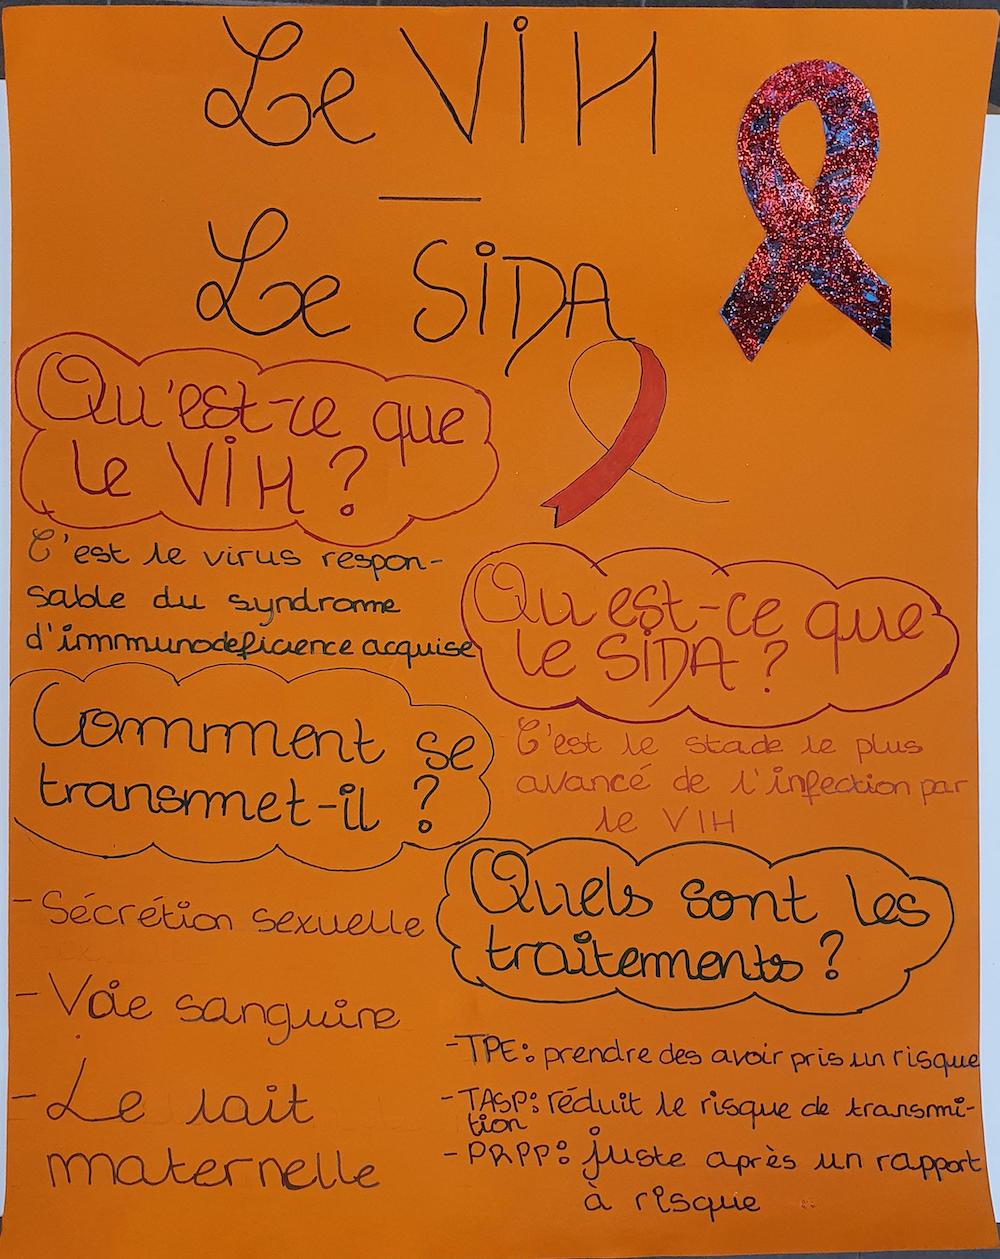 Le VIH
Le SIDA
Qu'est-ce que
le VIH ?
C'est le virus respon-
sable du syndrome
d'immunodeficience acquise
Qu'est-ce que
le SIDA ?
C'est le stade le plus
avancé de l'infection par
le VIH
Comment se
transmet-il ?
- Sécrétion sexuelle
- Voie sanguire
- Le lait
maternelle
Quels sont les
traitements ?
- TPE : prendre des avoir pris un risque
- TASP : réduit le risque de transmi-
tion
- PRPP : juste après un rapport
à risque